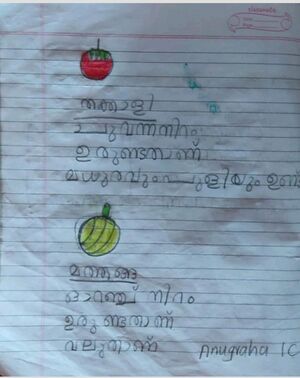 classmate
തക്കാളി
ചുവന്നനിറം
ഉരുണ്ടതാണ്
മധുരവും പുളിയും ഉണ്ട
മത്തങ്ങ
ഓറഞ്ച് നിറം
ഉരുണ്ടതാണ്
വലുതാണ്
Anugraha 1C